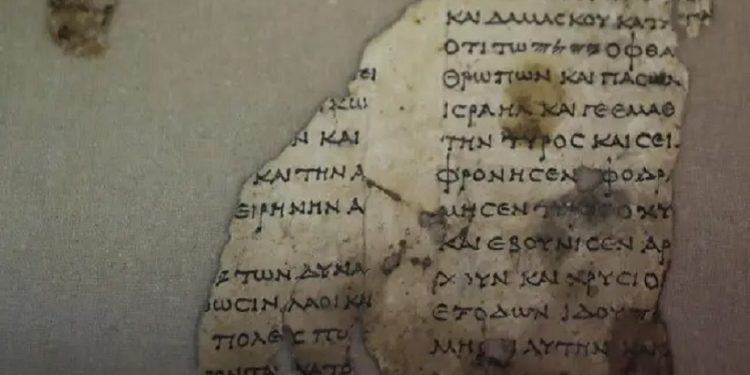 ΚΩ
Ν ΚΑΙ
ΚΑΙ ΤΗΝ Α
ΕΙΡΗΝΗΝ Α
ΤΩΝ ΔΥΝΑ
ΩϹΙΝ ΛΑΟΙ ΚΑΙ
ΠΟΛΕΙϹ ΠΟ
ΚΑΙ ΔΑΜΑϹΚΟΥ ΚΑΤ
ΟΤΙ ΤΩ 𐤉𐤄𐤅𐤄 ΟΦΘΑ
ΘΡΩΠΩΝ ΚΑΙ ΠΑϹΩΝ
ΙϹΡΑΗΛ ΚΑΙ ΓΕ ΕΜΑΘ
ΤΗΝ ΤΥΡΟϹ ΚΑΙ ϹΕΙ
ΦΡΟΝΗϹΕΝ ϹΦΟΔΡ
ΜΗϹΕΝ ΤΥΡΟϹ ΟΧΥ
ΚΑΙ ΕΒΟΥΝΙϹΕΝ ΑΡ
ΧΟΥΝ ΚΑΙ ΧΡΥϹΙΟ
ΟΔΩΝ ΙΔΟΥ
ΑΥΤΗΝ ΚΑΙ